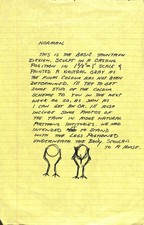 NORMAN
THIS IS THE BASIC
DESIGN, SCULPT IN A
POSITION IN 1½" = 1' SCALE &
PAINTED A NEUTRAL GRAY AS
THE FINAL COLOUR HAS NOT BEEN
DETERMINED. I'LL TRY TO GET
SOME OF THE COLOUR
SCHEME TO YOU IN THE NEXT
WEEK OR SO, AS SOON AS
I CAN GET AN OK. I'LL ALSO
INCLUDE SOME PHOTOS OF
THE IN MORE NATURAL
POSITIONS. WE HAD
INTENDED TO STAND
WITH THE LEGS POSITIONED
UNDERNEATH THE BODY, SIMILAR
TO A